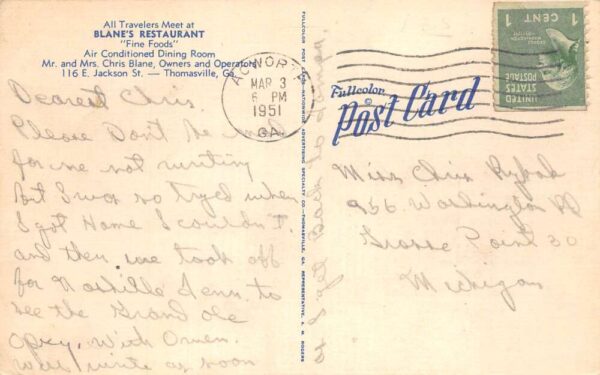 All Travelers Meet at
BLANE'S RESTAURANT
"Fine Foods"
Air Conditioned Dining Room
Mr. and Mrs. Chris Blane, Owners and Operators
116 E. Jackson St. — Thomasville, Ga.
Dearest Chris,
Please Don't be mad
for me not writing
But I was so tryed when
I got Home I couldn't.
and then we took off
for Nashille Tenn. to
see the Grand ole
opry, With Owen.
Well write as soon
FULLCOLOR POST CARD—NATIONWIDE ADVERTISING SPECIALTY CO.—THOMASVILLE, GA. REPRESENTATIVE, A. M. ROGERS
ACWORTH
MAR 3
6 PM
1951
GA.
Fullcolor
Post Card
1 CENT 1
UNITED
STATES
POSTAGE
Miss Chris Rybak
956 Washington Rd
Grosse Point 30
Michigan